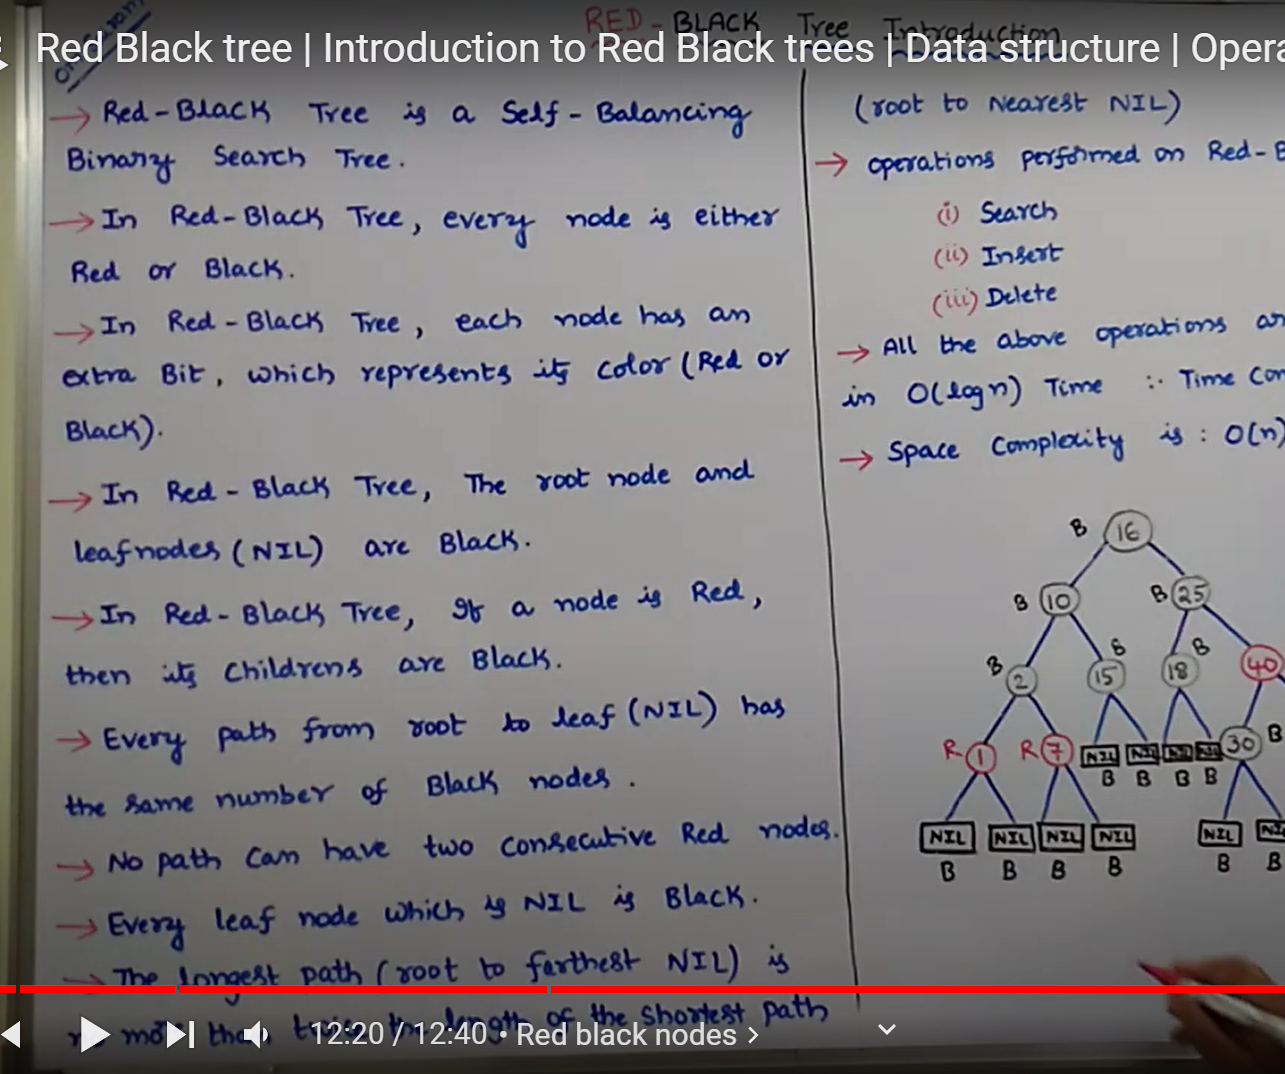 Red Black tree | Introduction to Red Black trees | Data structure | Opera
RED - BLACK Tree Introduction
→ Red-Black Tree is a Self-Balancing
Binary Search Tree.
→ In Red-Black Tree, every node is either
Red or Black.
→ In Red-Black Tree, each node has an
extra Bit, which represents its color (Red or
Black).
→ In Red-Black Tree, The root node and
leafnodes (NIL) are Black.
→ In Red-Black Tree, If a node is Red,
then its Childrens are Black.
→ Every path from root to leaf (NIL) has
the same number of Black nodes.
→ No path can have two consecutive Red nodes.
→ Every leaf node which is NIL is Black.
→ The longest path (root to farthest NIL) is
than twice the length of the shortest path
(root to Nearest NIL)
→ operations performed on Red-B
(i) Search
(ii) Insert
(iii) Delete
→ All the above operations ar
in O(log n) Time ∴ Time Com
→ Space Complexity is : O(n)
B 16
B 10 B 25
B 2 B 15 B 18 40
R 1 R 7 NIL NIL NIL NIL 30 B
B B B B
NIL NIL NIL NIL NIL NI
B B B B B B
12:20 / 12:40 • Red black nodes >